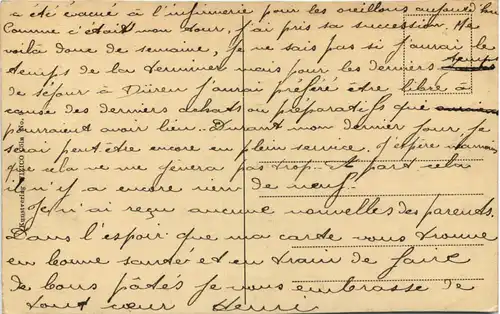 a été évacué à l'infirmerie pour les oreillons aujourd'hui
Comme c'était mon tour, j'ai pris sa succession. Me
voilà donc de semaine, je ne sais pas si j'aurai le
temps de la terminer mais pour les derniers temps
de séjour à Düren j'aurai préféré être libre à
cause des derniers achats ou préparatifs que
pourraient avoir lieu.. Durant mon dernier jour, je
serai peut être encore en plein service. J'espère
que cela ne me gènera pas trop. _ A part cela
il n'y a encore rien de neuf._
Je n'ai reçu aucune nouvelles des parents.
Dans l'espoir que ma carte vous trouve
en bonne santé et en train de faire
de bons pâtés je vous embrasse de
tout cœur Henri
Kunstverlag